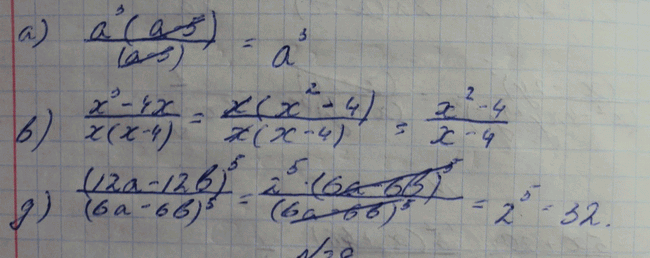 а) a³(a-5)/(a-5) = a³
в) x³-4x/x(x-4) = x(x²-4)/x(x-4) = x²-4/x-4
д) (12a-12b)⁵/(6a-6b)⁵ = 2⁵·(6a-6b)⁵/(6a-6b)⁵ = 2⁵ = 32.